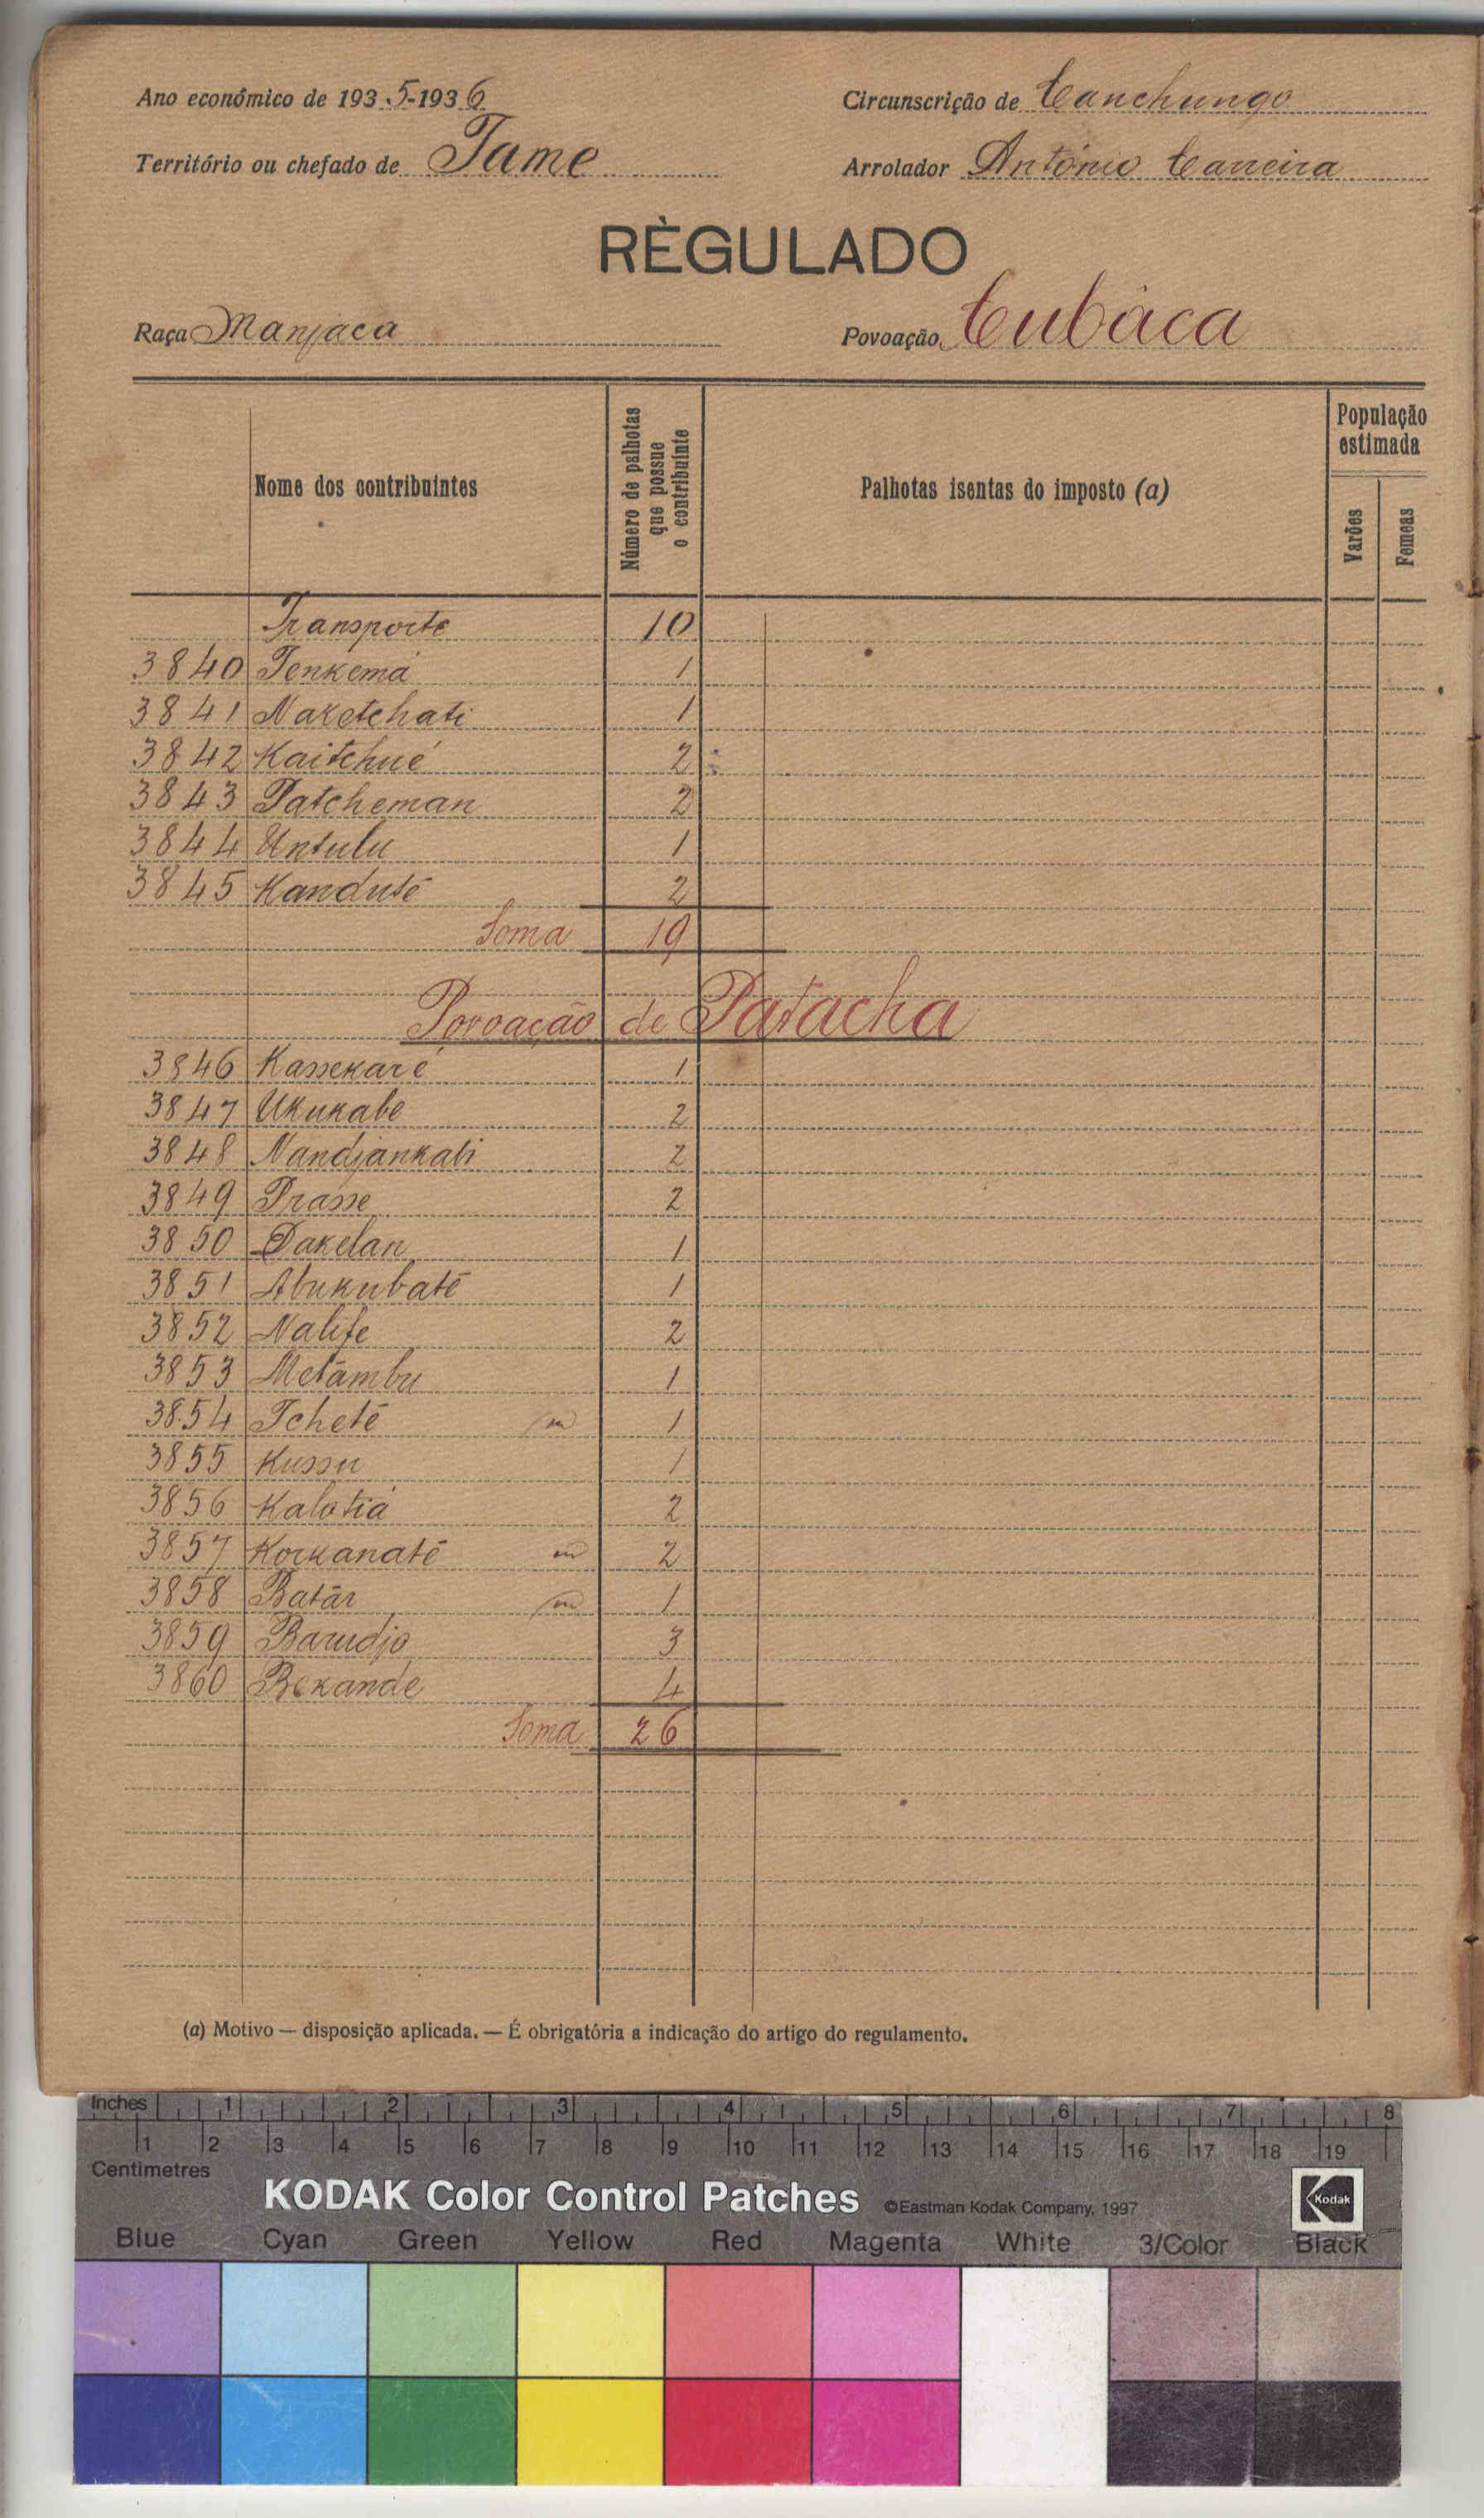 Ano económico de 1935-1936
Circunscrição de Canchungo
Território ou chefado de Tame
Arrolador António Carreira
RÈGULADO
Raça Manjaca
Povoação Cubáca
Nome dos contribuintes
Número de palhotas que possue o contribuinte
Palhotas isentas do imposto (a)
População estimada
Varões
Femeas
Transporte 10
3840 Tenkemá 1
3841 Naketchati 1
3842 Kaitchué 2
3843 Patcheman 2
3844 Untulu 1
3845 Kanduté 2
Soma 19
Povoação de Patacha
3846 Kassekaré 1
3847 Ukukabe 2
3848 Nandjankati 2
3849 Prasse 2
3850 Dakelan 1
3851 Abukubaté 1
3852 Nalife 2
3853 Metãmbu 1
3854 Tcheté m 1
3855 Kussu 1
3856 Kalotiá 2
3857 Korkanaté m 2
3858 Batãr m 1
3859 Barudjo 3
3860 Bekande 4
Soma 26
(a) Motivo — disposição aplicada. — É obrigatória a indicação do artigo do regulamento.
Inches 1 2 3 4 5 6 7 8
1 2 3 4 5 6 7 8 9 10 11 12 13 14 15 16 17 18 19
Centimetres
KODAK Color Control Patches ©Eastman Kodak Company, 1997 Kodak
Blue Cyan Green Yellow Red Magenta White 3/Color Black